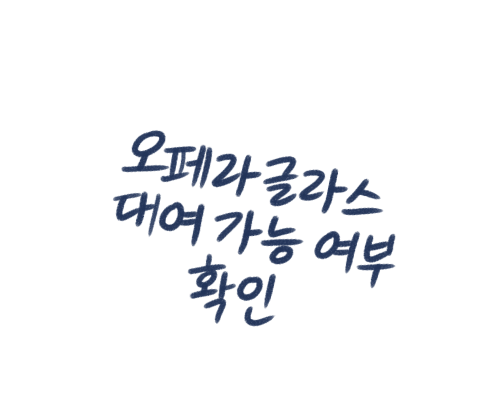 오페라글라스
대여 가능 여부
확인